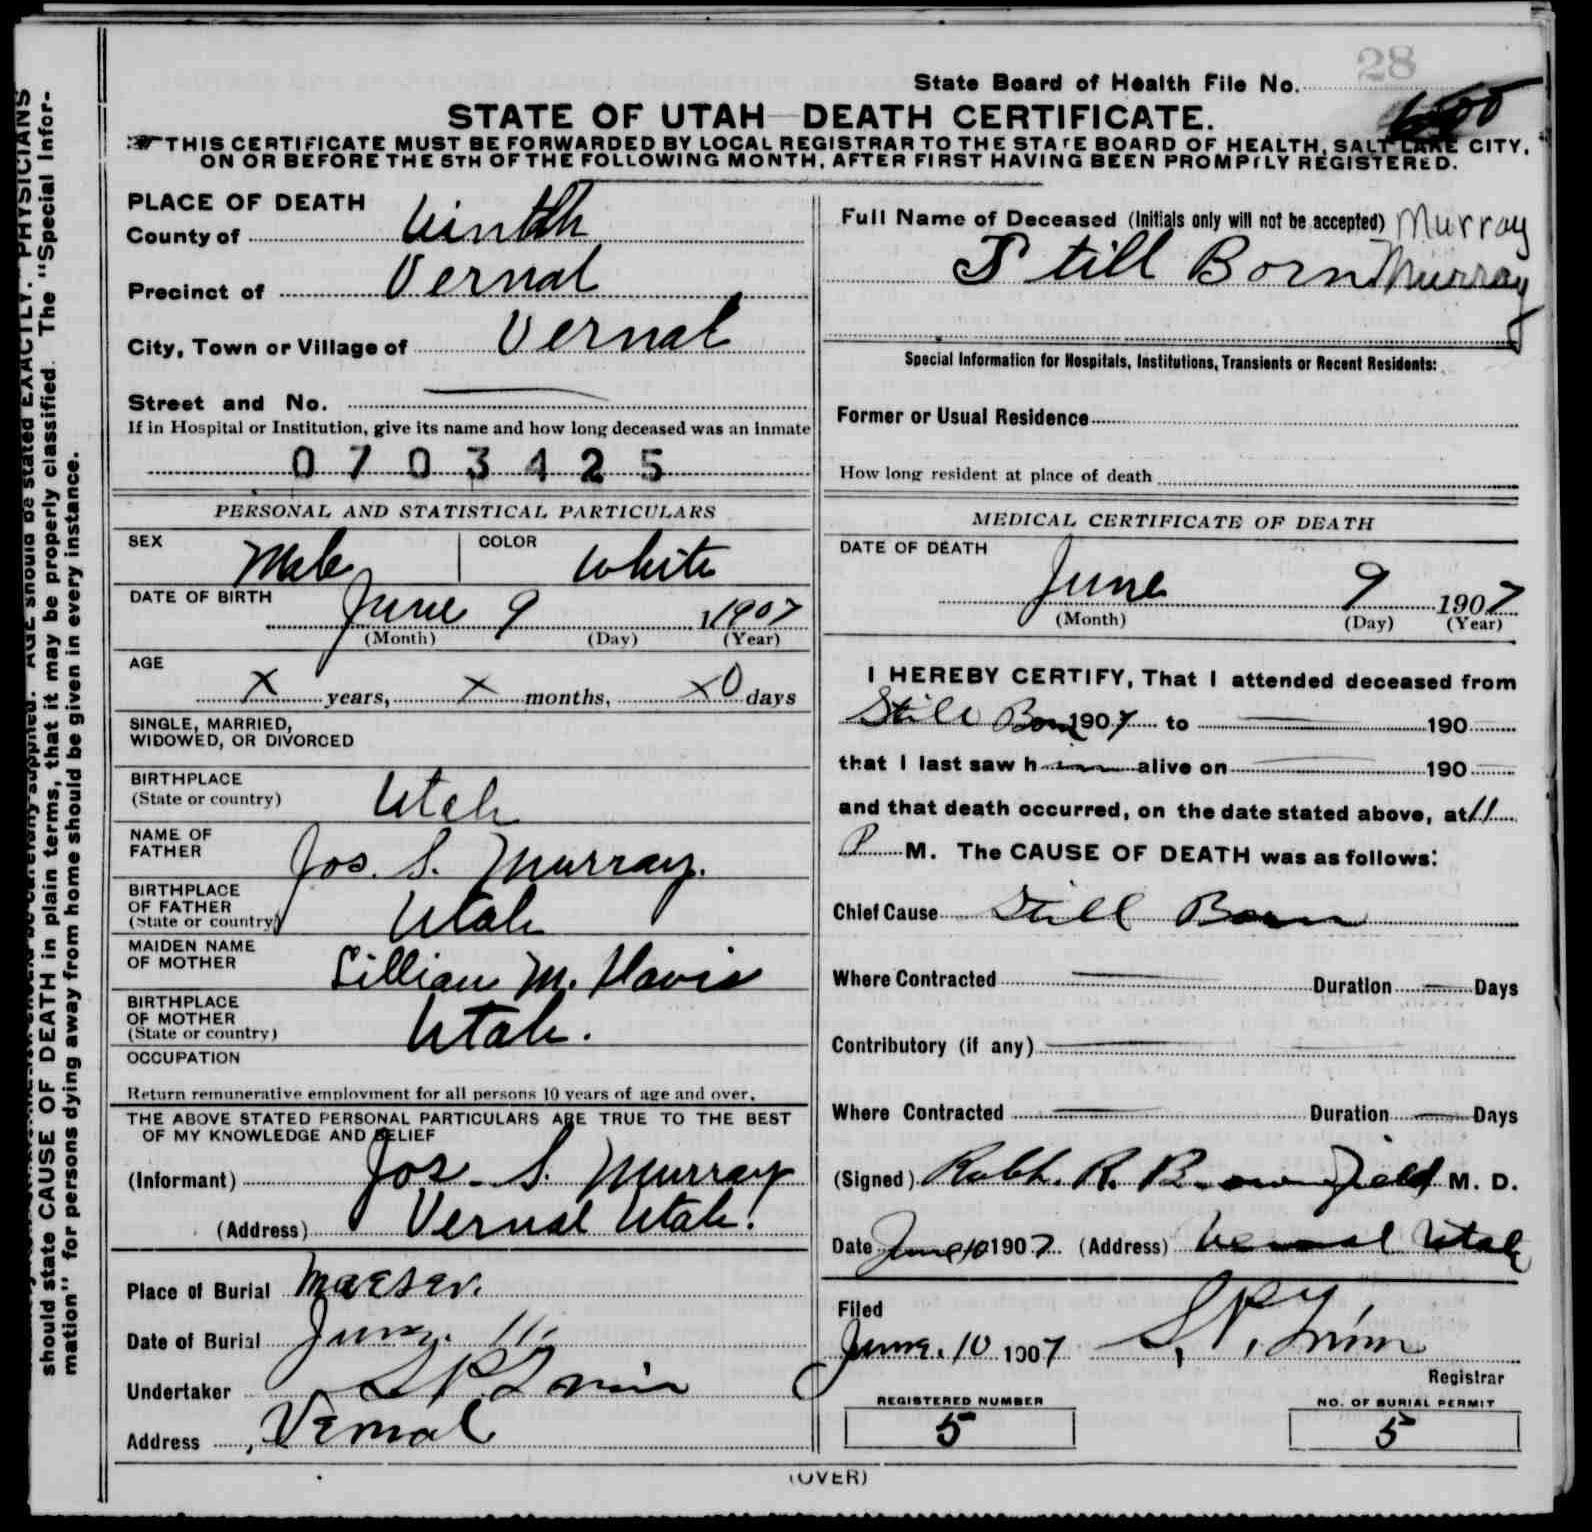 28
State Board of Health File No.
STATE OF UTAH—DEATH CERTIFICATE.
THIS CERTIFICATE MUST BE FORWARDED BY LOCAL REGISTRAR TO THE STATE BOARD OF HEALTH, SALT LAKE CITY,
ON OR BEFORE THE 5TH OF THE FOLLOWING MONTH, AFTER FIRST HAVING BEEN PROMPTLY REGISTERED.
PLACE OF DEATH
County of Uintah
Precinct of Vernal
City, Town or Village of Vernal
Street and No. —
If in Hospital or Institution, give its name and how long deceased was an inmate
0703425
PERSONAL AND STATISTICAL PARTICULARS
SEX Male COLOR White
DATE OF BIRTH June 9 1907
(Month) (Day) (Year)
AGE
X years, X months, X0 days
SINGLE, MARRIED,
WIDOWED, OR DIVORCED
BIRTHPLACE
(State or country) Utah
NAME OF
FATHER Jos. S. Murray.
BIRTHPLACE
OF FATHER
(State or country) Utah
MAIDEN NAME
OF MOTHER Lillian M. Davis
BIRTHPLACE
OF MOTHER
(State or country) Utah.
OCCUPATION
Return remunerative employment for all persons 10 years of age and over.
THE ABOVE STATED PERSONAL PARTICULARS ARE TRUE TO THE BEST
OF MY KNOWLEDGE AND BELIEF
(Informant) Jos. S. Murray
(Address) Vernal Utah.
Place of Burial Maeser.
Date of Burial June. 11.
Undertaker S P
Address Vernal
Full Name of Deceased (Initials only will not be accepted) Murray
Still Born Murray
Special Information for Hospitals, Institutions, Transients or Recent Residents:
Former or Usual Residence
How long resident at place of death
MEDICAL CERTIFICATE OF DEATH
DATE OF DEATH
June 9 1907
(Month) (Day) (Year)
I HEREBY CERTIFY, That I attended deceased from
Still Born 1907 to — 190
that I last saw him alive on — 190 —
and that death occurred, on the date stated above, at 11
P M. The CAUSE OF DEATH was as follows:
Chief Cause Still Born
Where Contracted — Duration — Days
Contributory (if any) —
Where Contracted — Duration — Days
(Signed) Robt. R. Brownfield M. D.
Date June 10 1907 (Address) Vernal Utah
Filed
June. 10 1907 S. P.
Registrar
REGISTERED NUMBER
5
NO. OF BURIAL PERMIT
5
(OVER)
should be stated EXACTLY. PHYSICIANS
should state CAUSE OF DEATH in plain terms, that it may be properly classified. The "Special Infor-
mation" for persons dying away from home should be given in every instance.